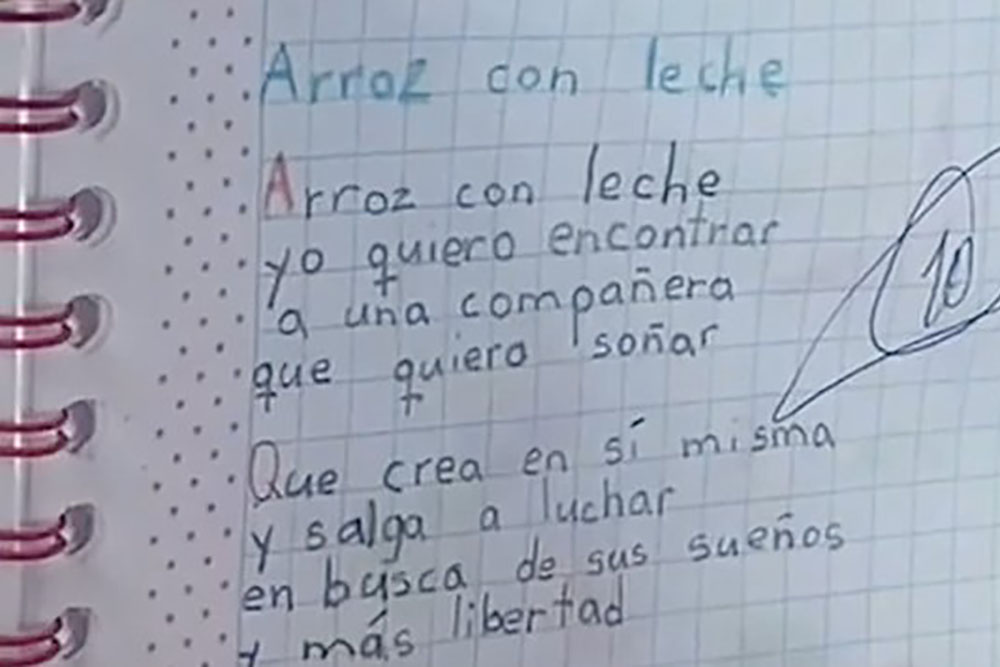 Arroz con leche
Arroz con leche
yo quiero encontrar
a una compañera
que quiera soñar
10
Que crea en sí misma
y salga a luchar
en busca de sus sueños
y más libertad